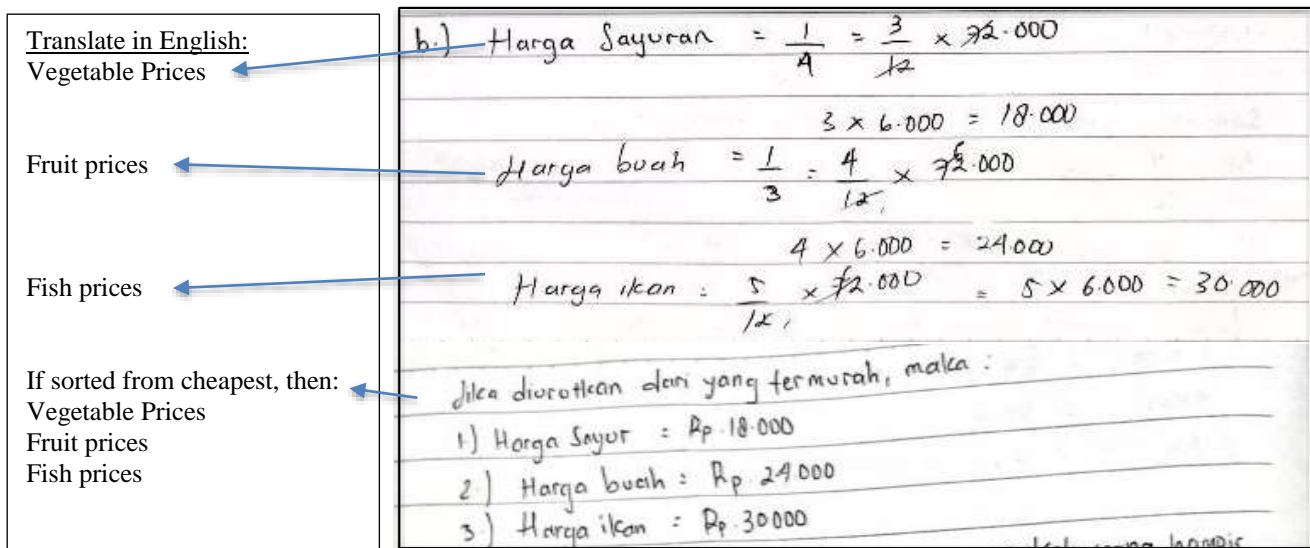 Translate in English:
Vegetable Prices
Fruit prices
Fish prices
If sorted from cheapest, then:
Vegetable Prices
Fruit prices
Fish prices
b.) Harga Sayuran = 1/4 = 3/12 × 72.000
3 × 6.000 = 18.000
Harga buah = 1/3 = 4/12 × 72.000
4 × 6.000 = 24.000
Harga ikan = 5/12 × 72.000 = 5 × 6.000 = 30.000
Jika diurutkan dari yang termurah, maka :
1.) Harga Sayur = Rp. 18.000
2.) Harga buah = Rp. 24.000
3.) Harga ikan = Rp. 30000